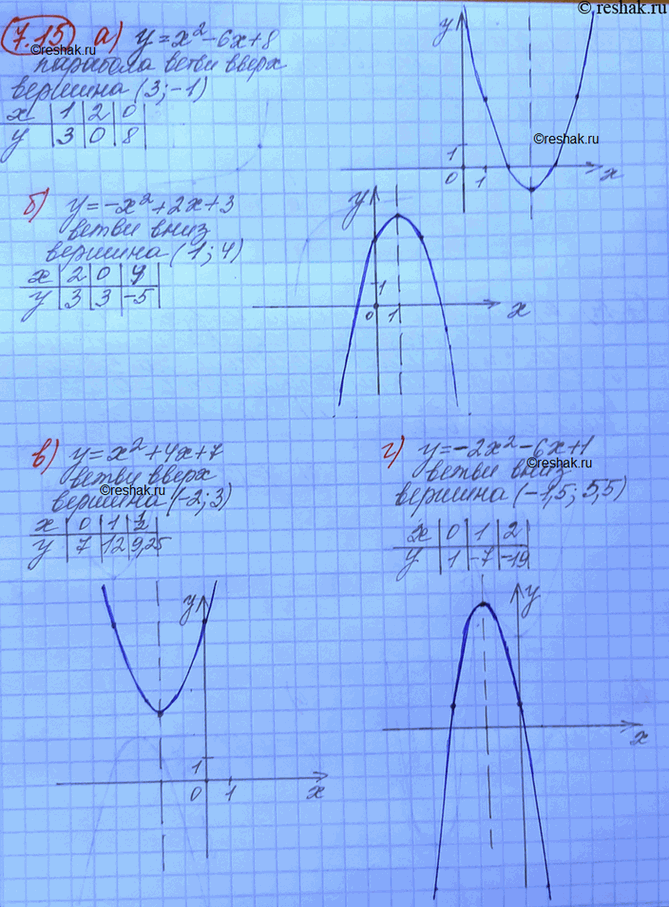 © reshak.ru
7.15 а) y = x² - 6x + 8
©reshak.ru
парабола ветви вверх
вершина (3; -1)
x | 1 | 2 | 0 |
y | 3 | 0 | 8 |
y
1
0 1 x
©reshak.ru
б) y = -x² + 2x + 3
ветви вниз
вершина (1; 4)
x | 2 | 0 | 4 |
y | 3 | 3 | -5 |
y
1
0 1 x
в) y = x² + 4x + 7
ветви вверх
©reshak.ru
вершина (-2; 3)
x | 0 | 1 | ½
y | 7 | 12 | 9,25
y
1
0 1 x
г) y = -2x² - 6x + 1
ветви вниз
©reshak.ru
вершина (-1,5; 5,5)
x | 0 | 1 | 2 |
y | 1 | -7 | -19 |
y
x